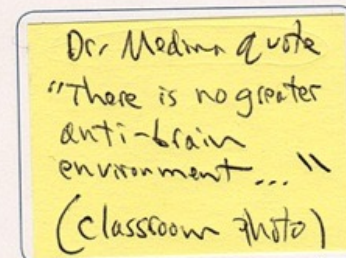 Dr. Medina quote
"There is no greater
anti-brain
environment..."
(classroom photo)